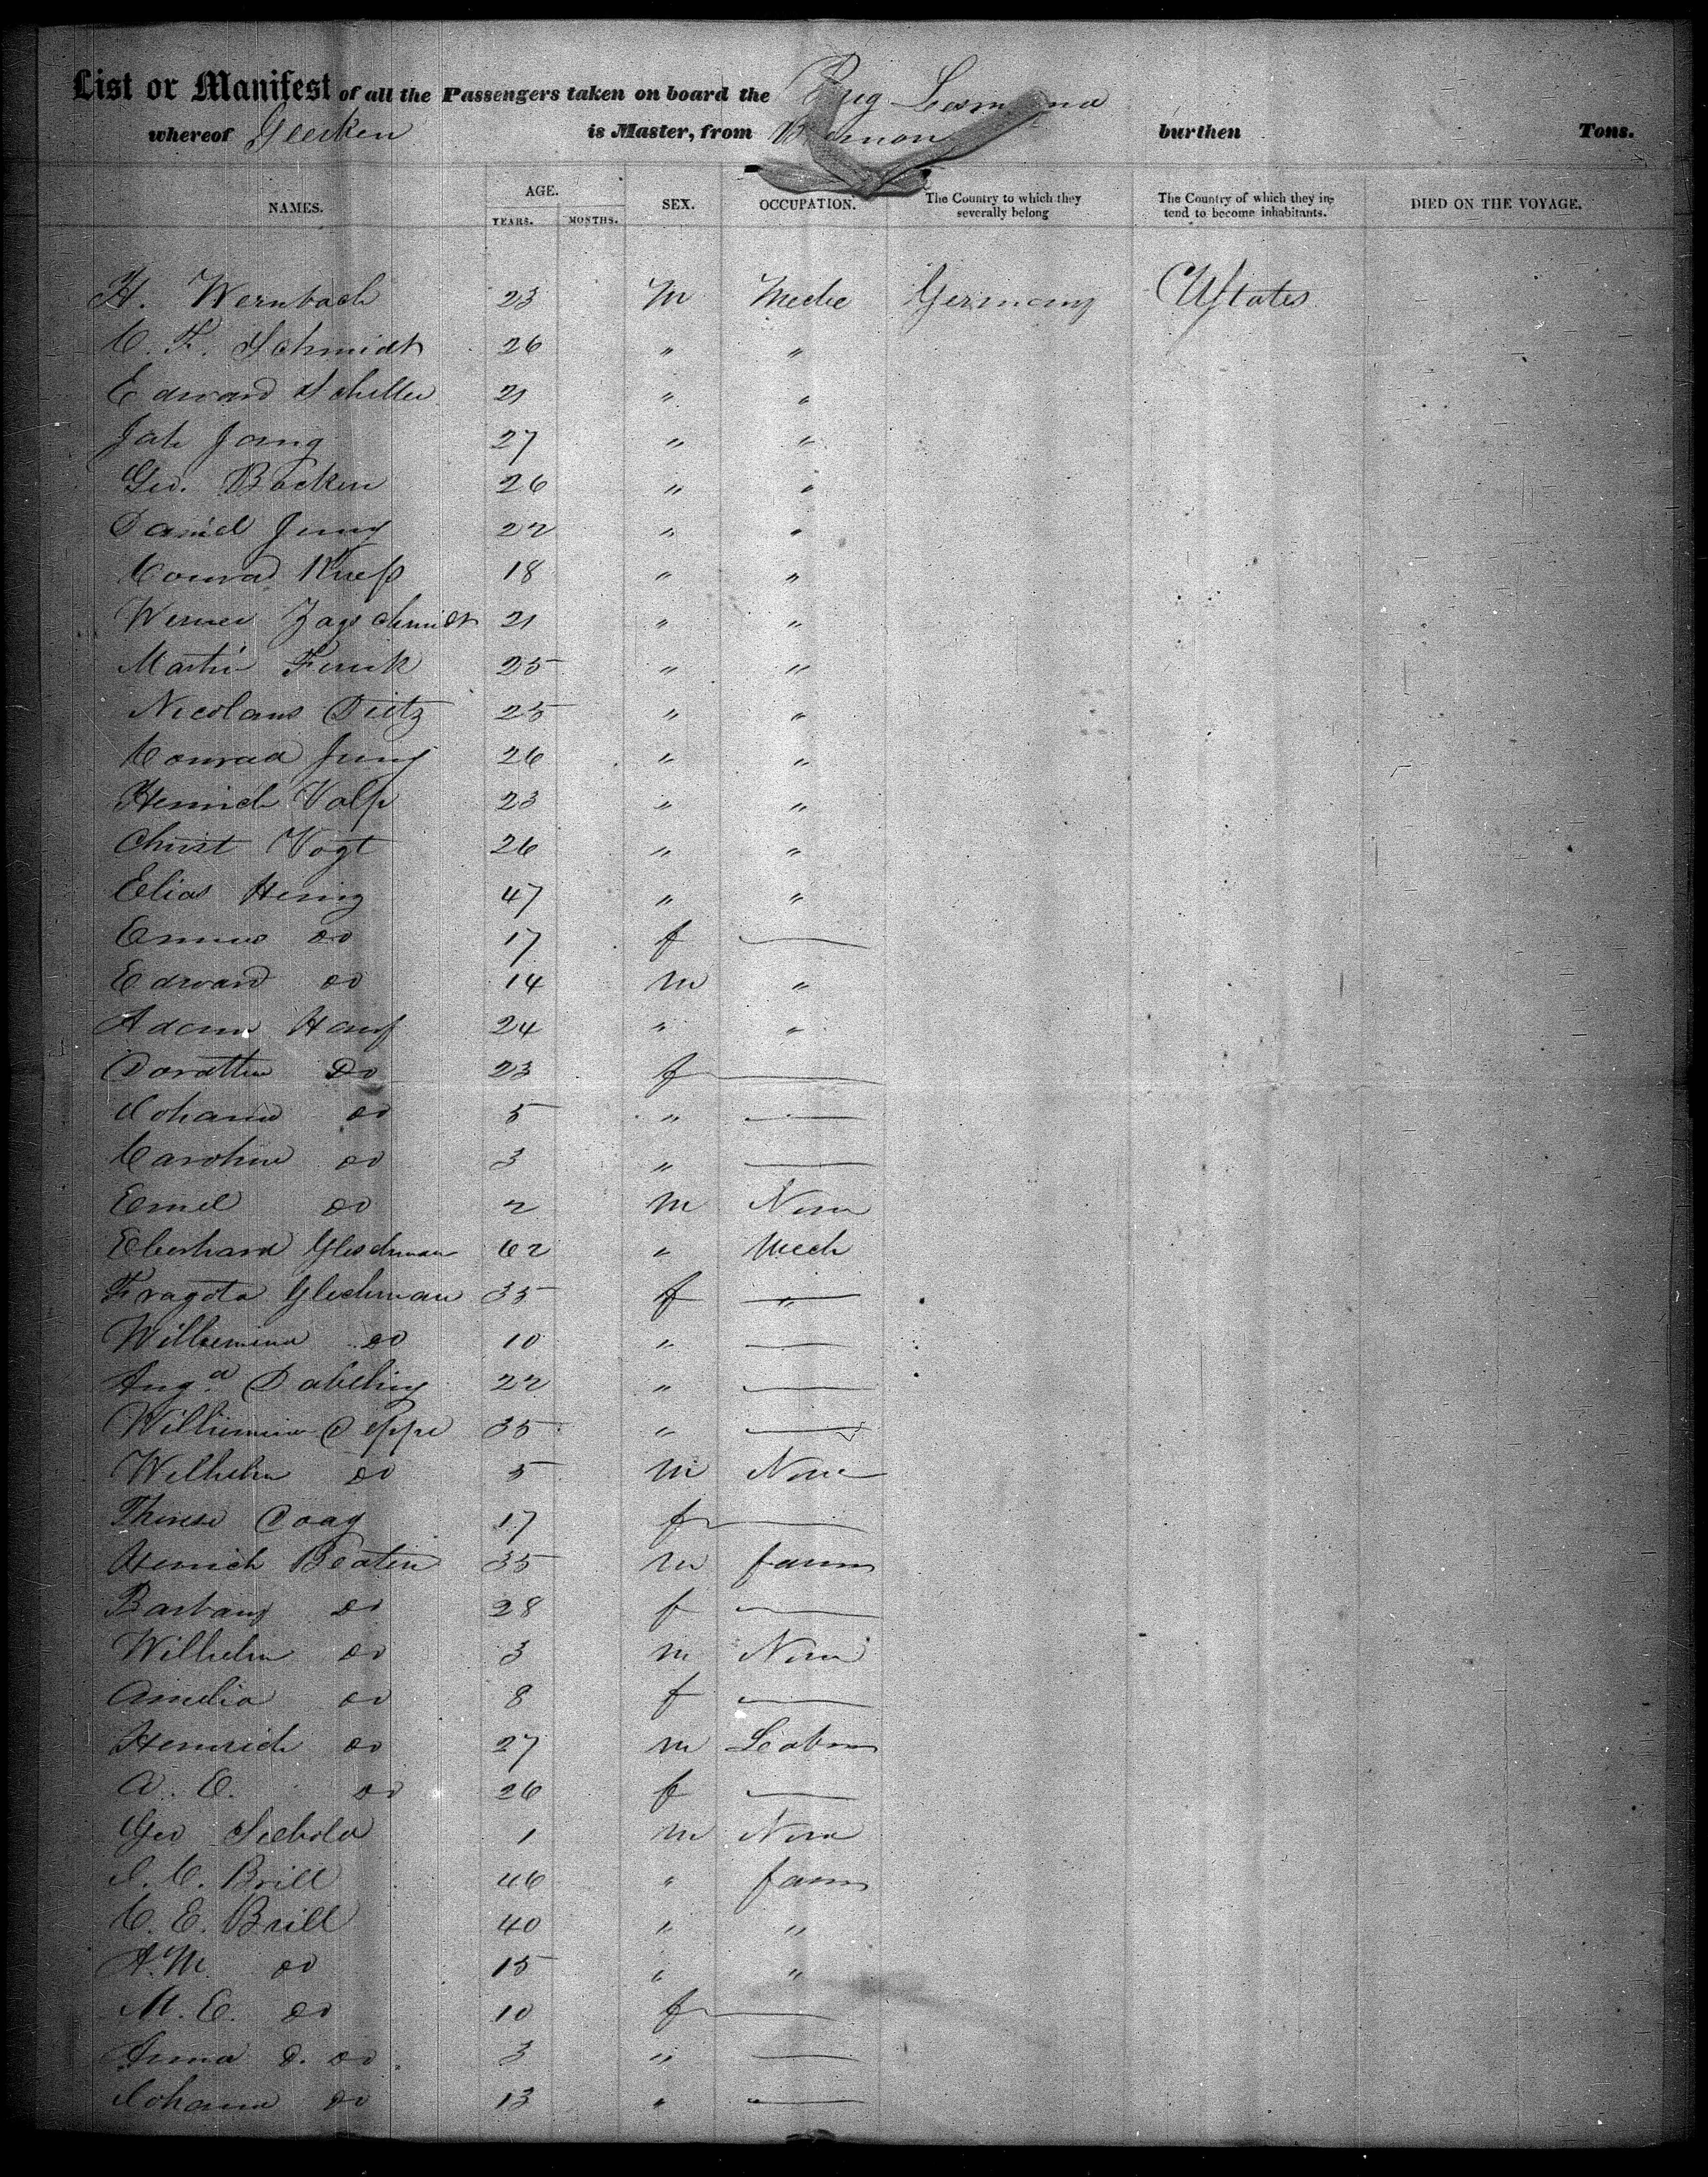 List or Manifest of all the Passengers taken on board the Brig Lesmona
whereof Geerken is Master, from Bremen burthen Tons.
NAMES. AGE. YEARS. MONTHS. SEX. OCCUPATION. The Country to which they severally belong The Country of which they intend to become inhabitants. DIED ON THE VOYAGE.
H. Wernbach 23 M Mechc Germany UStates
C. F. Schmidt 26 " "
Edward Schiller 21 " "
Jang 27 " "
Geo. Backen 26 " "
Daniel Jung 22 " "
Conrad 18 " "
Werner 21 " "
Martin 25 " "
Nicolaus Dietz 25 " "
Conrad Jung 26 " "
Henrich 23 " "
Christ Vogt 26 " "
Elias Hening 47 " "
do 17 f —
Edward do 14 m "
Adam 24 " "
Dorathea Do 23 f —
Johanna do 5 " —
Caroline do 3 " —
Emel do 2 m None
Eberhard 62 " Mech
Glechman 35 f "
Willhemina do 10 " —
Auga Dabeling 22 " —
Wilhemina Deppe 35 " —
Wilhelm do 5 m None
Therese 17 f —
Henrich Beatin 35 m farm
do 28 f —
Wilhelm do 3 m None
Amelia do 8 f —
Heinrich do 27 m Labor
A. E. do 26 f —
Geo Siebold 1 m None
J. C. Brill 46 " farm
C. E. Brill 40 " "
A. M. do 15 " "
M. E. do 10 f —
Anna D. do 3 " —
Johanna do 13 " —